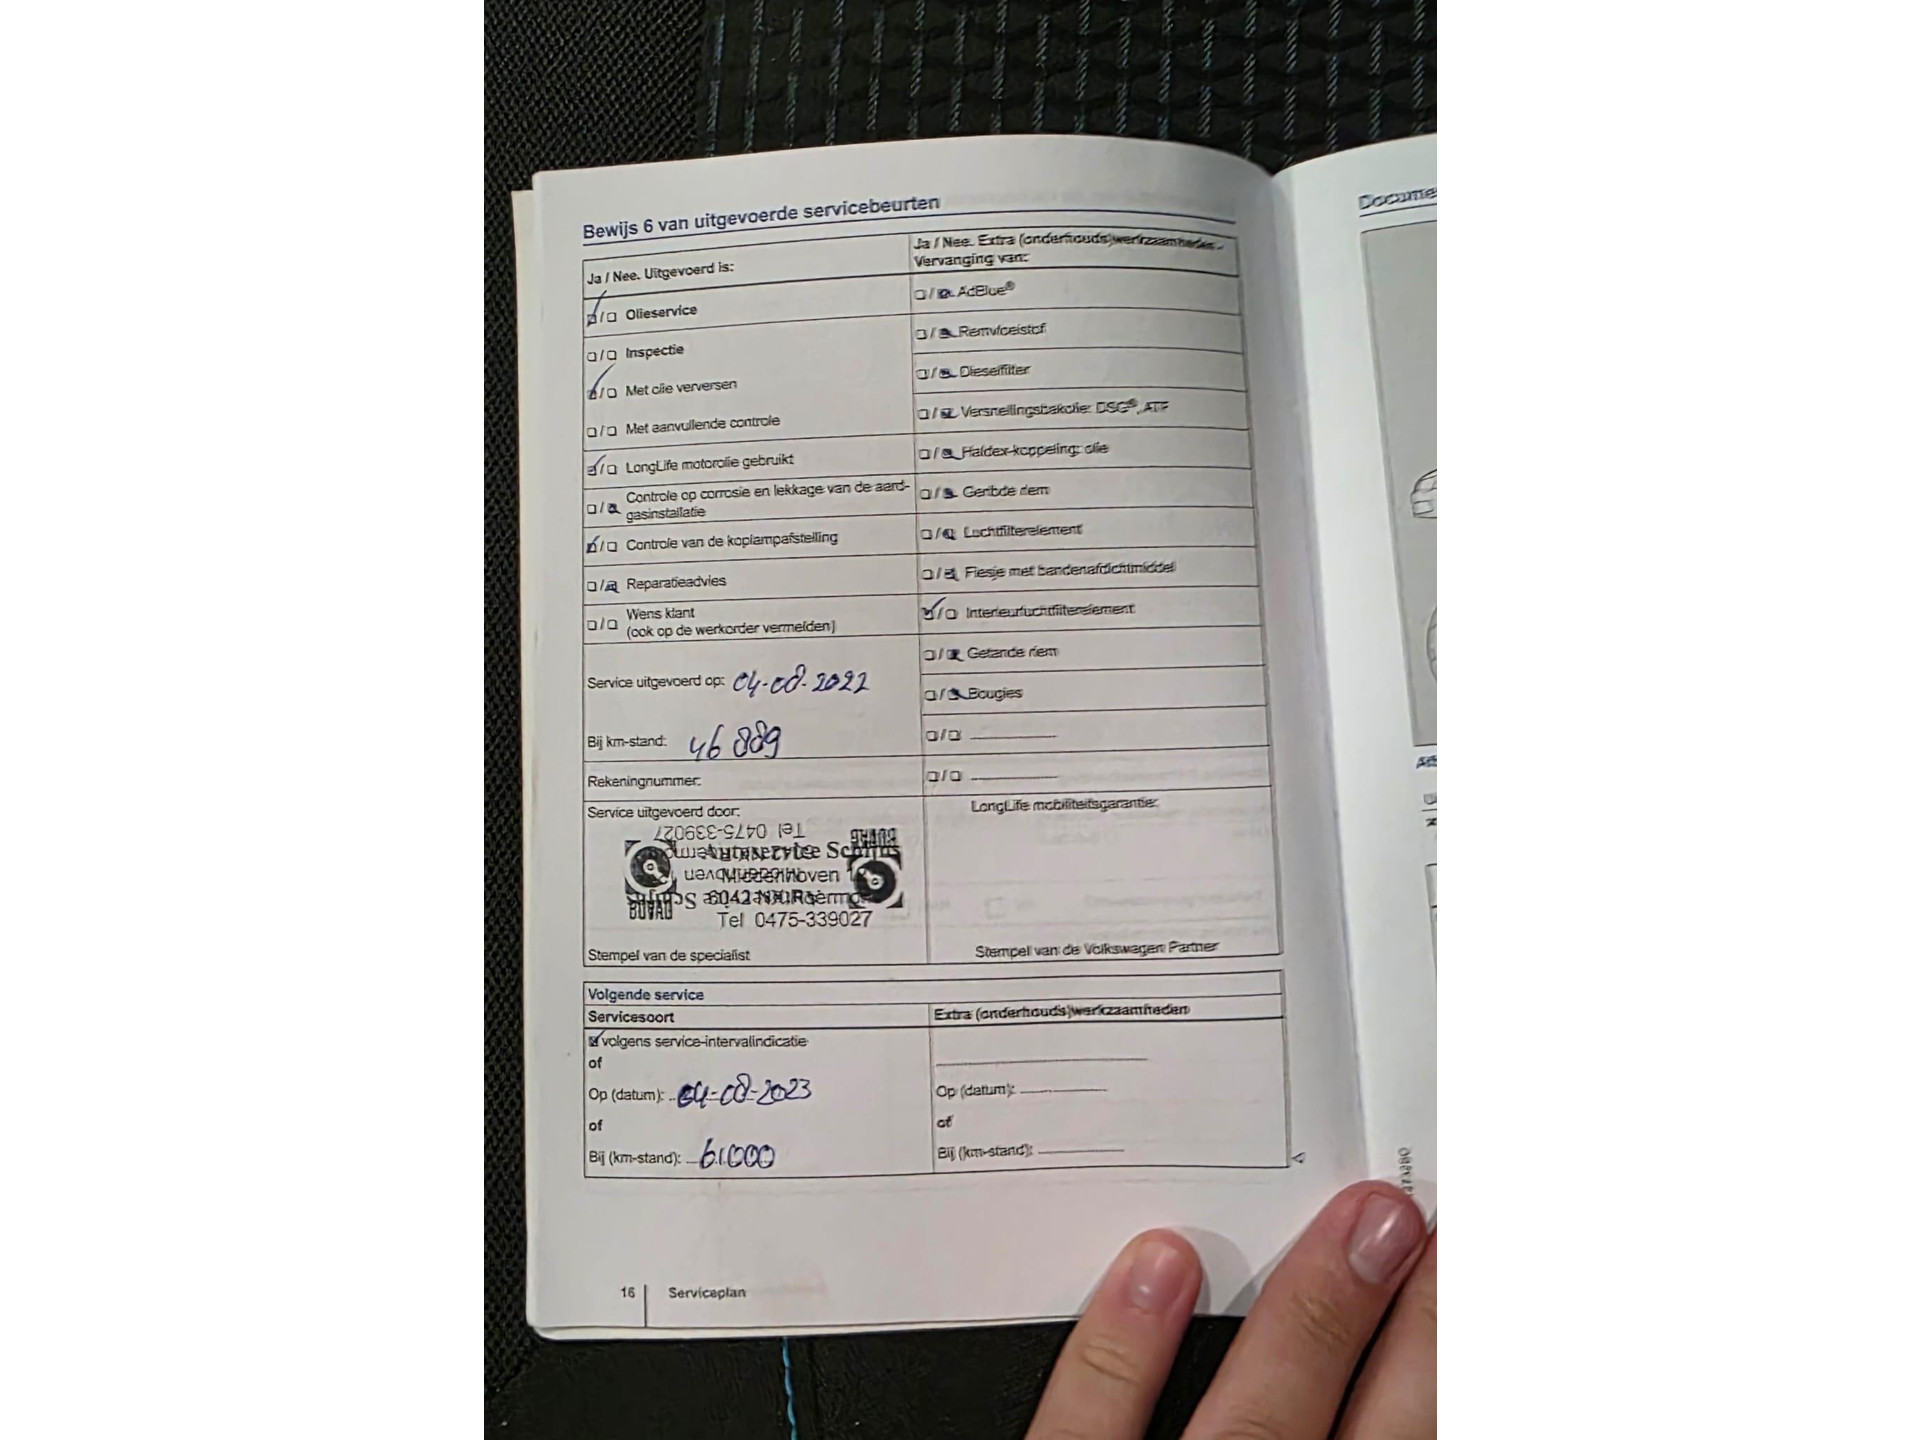 Bewijs 6 van uitgevoerde servicebeurten
Ja / Nee. Uitgevoerd is:
Olieservice
Inspectie
Met olie verversen
Met aanvullende controle
LongLife motorolie gebruikt
Controle op corrosie en lekkage van de aard-
gasinstallatie
Controle van de koplampafstelling
Reparatieadvies
Wens klant
(ook op de werkorder vermelden)
Service uitgevoerd op: 04-08-2022
Bij km-stand: 46 889
Rekeningnummer:
Service uitgevoerd door:
Tel 0475-339027
BOVAG
Autoservice Schijns
Middenhoven
6042 NX Roermond
Tel 0475-339027
BOVAG
Stempel van de specialist
Ja / Nee. Extra (onderhouds)werkzaamheden -
Vervanging van:
AdBlue®
Remvloeistof
Dieselfilter
Versnellingsbakolie: DSG®, ATF
Haldex-koppeling: olie
Geribde riem
Luchtfilterelement
Flesje met bandenafdichtmiddel
Interieurluchtfilterelement
Getande riem
Bougies
LongLife mobiliteitsgarantie:
Stempel van de Volkswagen Partner
Volgende service
Servicesoort
volgens service-intervalindicatie
of
Op (datum): 04-08-2023
of
Bij (km-stand): 61000
Extra (onderhouds)werkzaamheden
Op (datum):
of
Bij (km-stand):
16 Serviceplan
Docume